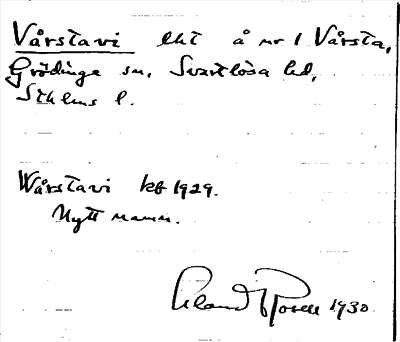 Vårstavi lht å nr 1 Vårsta,
Grödinge sn, Svartlösa hd,
Sthlms l.
Wårstavi kb 1929.
Nytt namn.
Rosell 1930